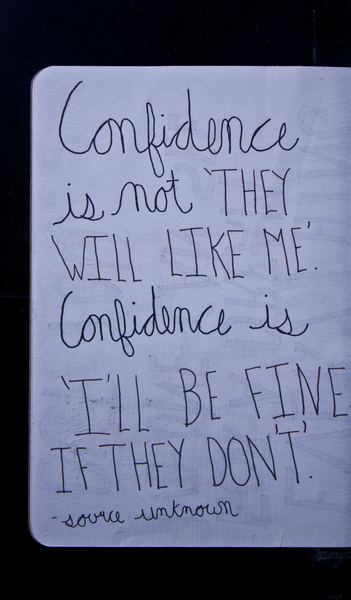 Confidence
is not 'THEY
WILL LIKE ME'.
Confidence is
'I'LL BE FINE
IF THEY DON'T'.
-source unknown